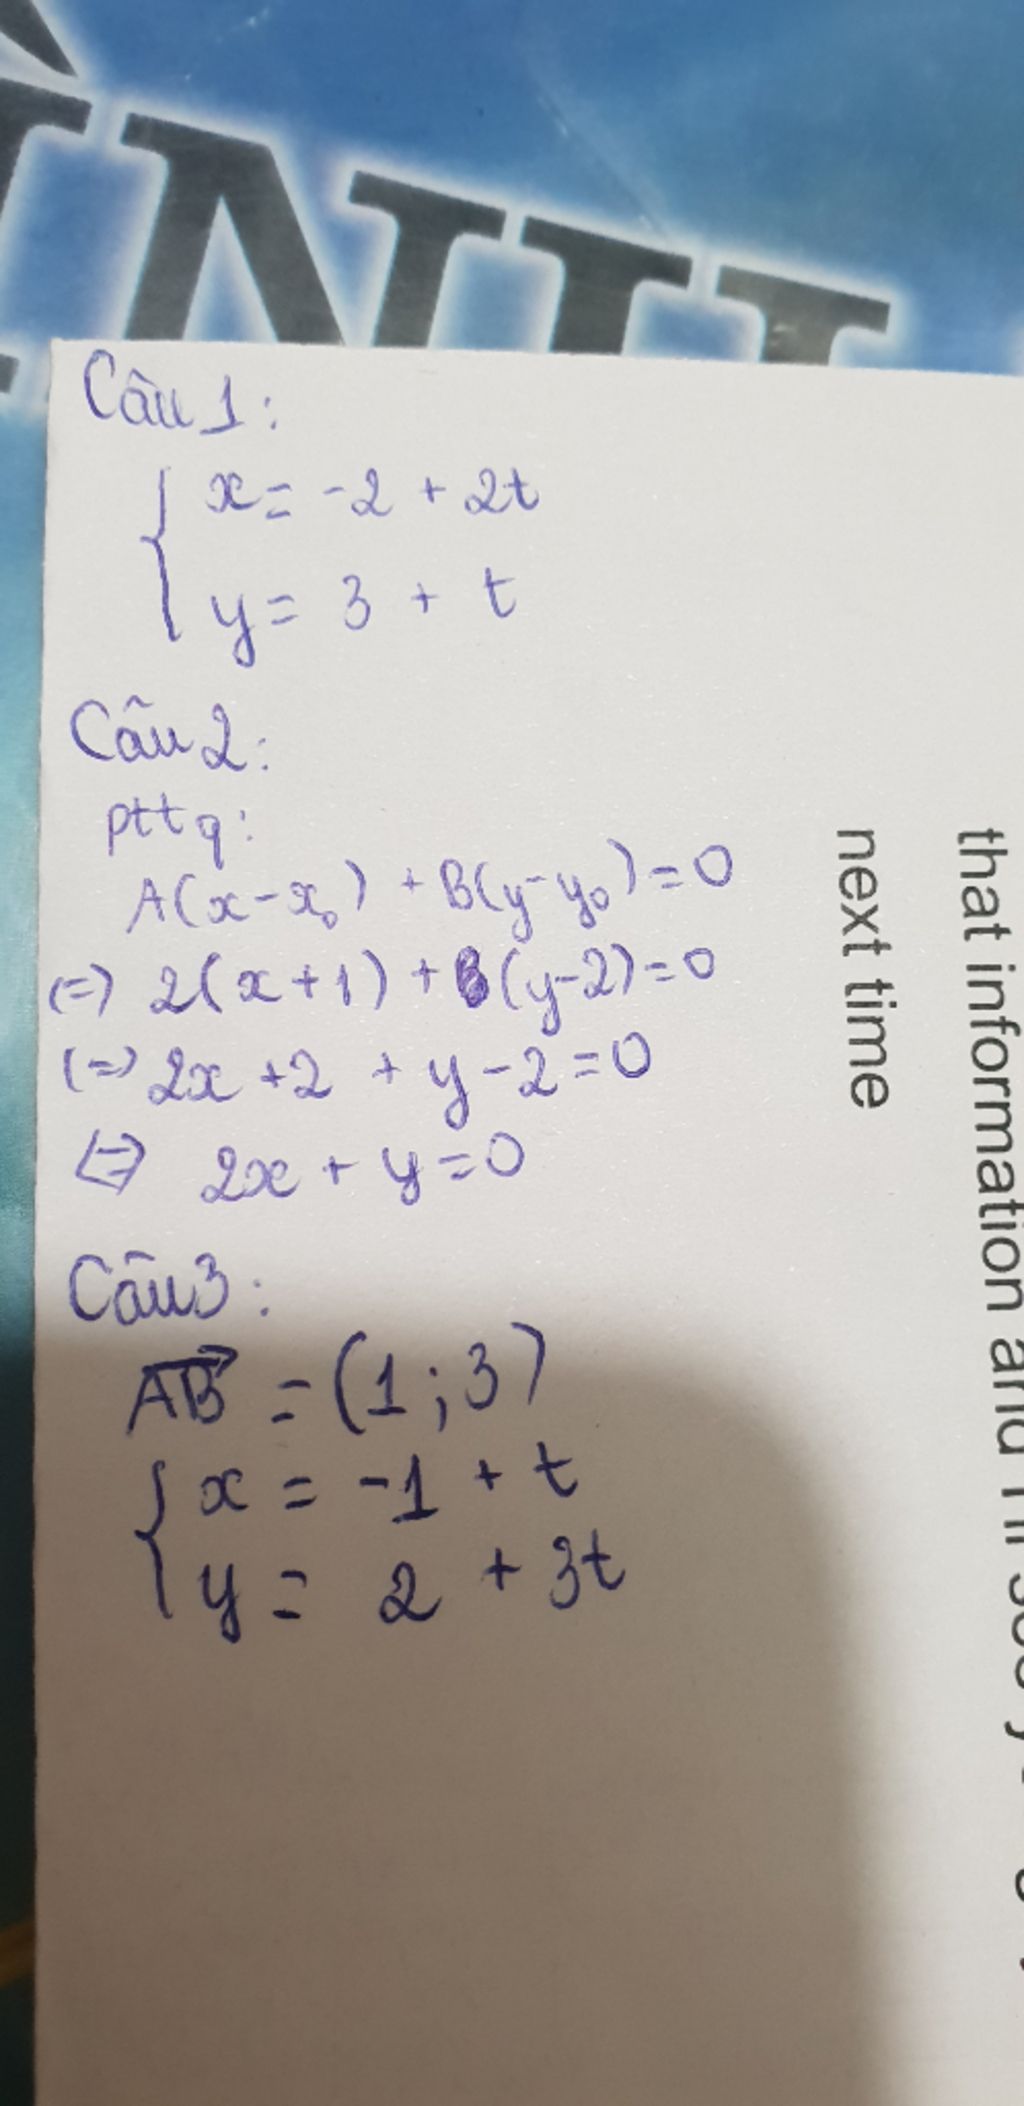 Câu 1:
x = -2 + 2t
y = 3 + t
Câu 2:
pttq:
A(x-x₀) + B(y-y₀) = 0
(=) 2(x+1) + (y-2) = 0
(=) 2x + 2 + y - 2 = 0
(=) 2x + y = 0
Câu 3:
AB = (1; 3)
x = -1 + t
y = 2 + 3t
that information and I'll see
next time